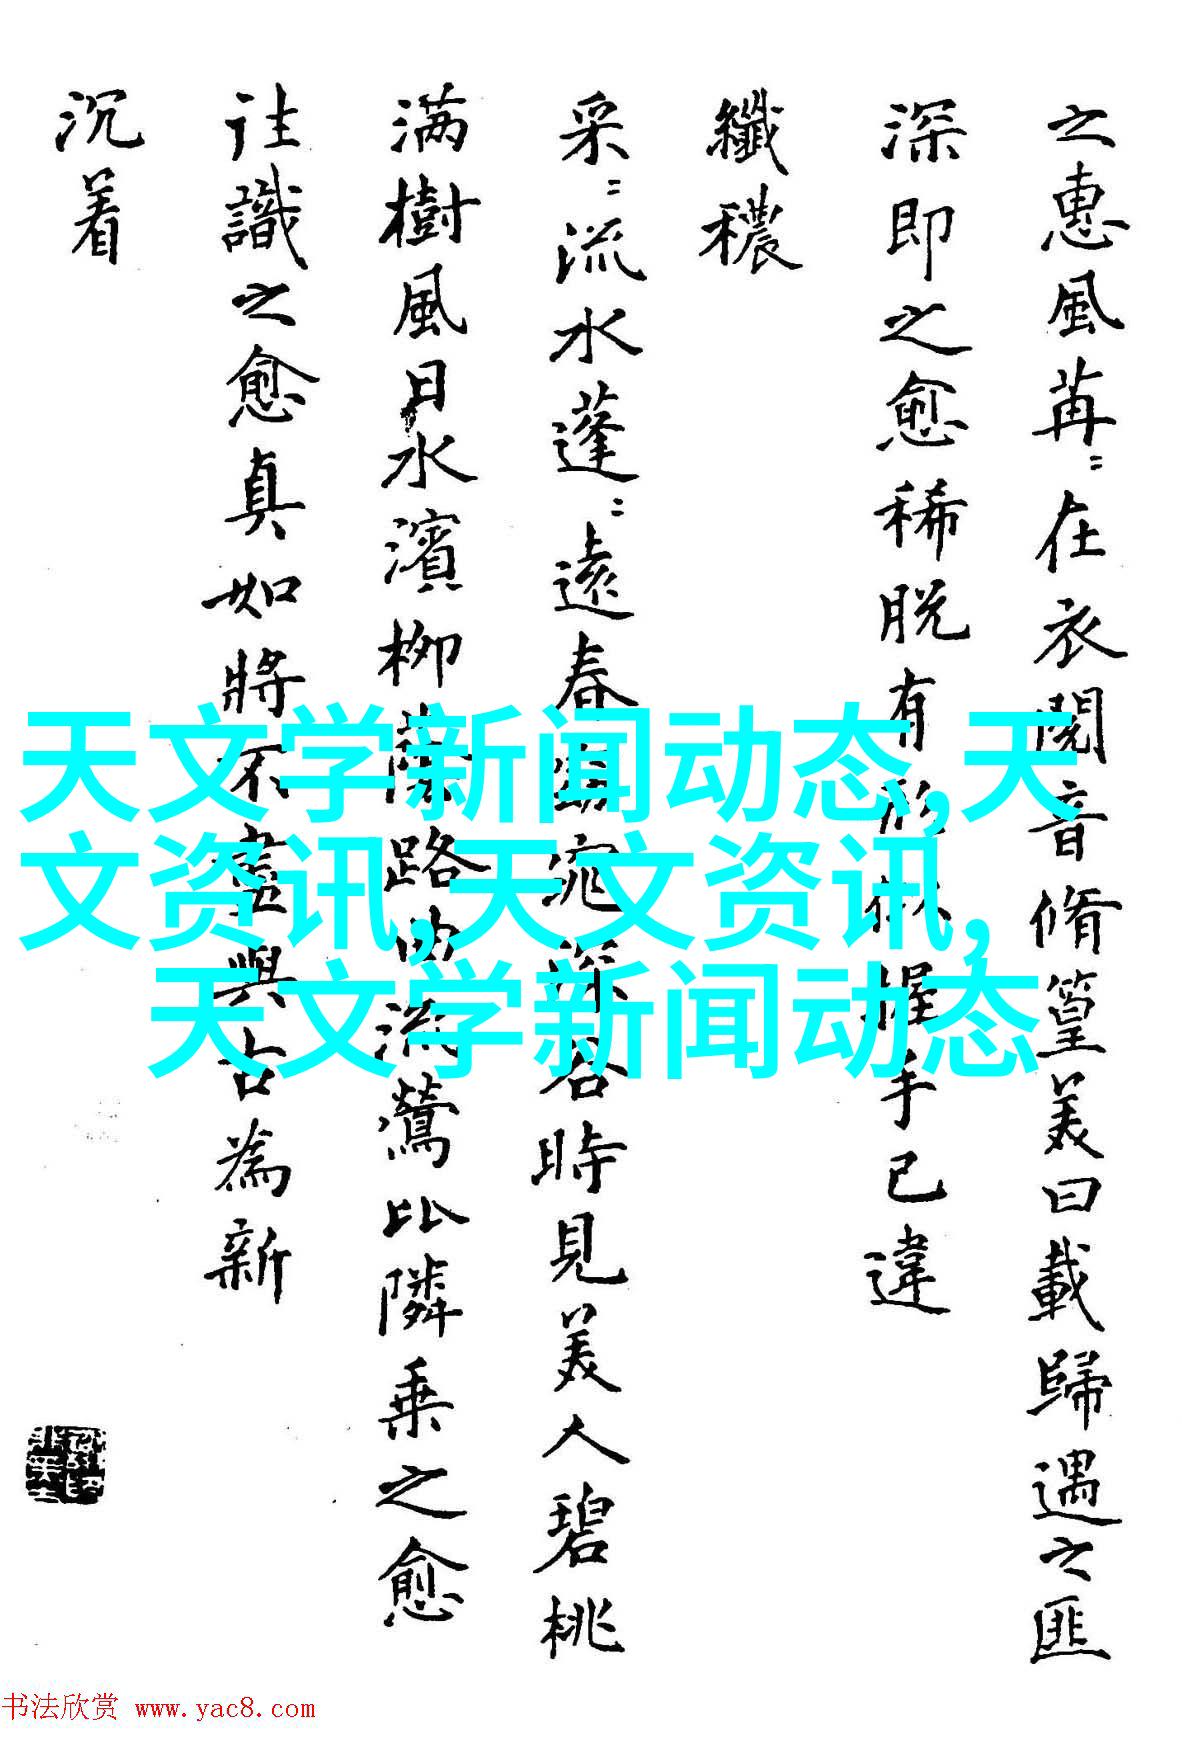 之惠風苒〻在衣閱音脩篁美曰載歸遇之匪
深即之愈稀脱有形似握手已違
纖穠
采〻流水蓬〻遠春窈深谷時見美人碧桃
满樹風日水濱柳陰路曲流鶯比隣乗之愈
往識之愈真如将不盡與古為新
沉着
天文学新闻动态,天
文资讯,天文资讯,
天文学新闻动态
书法欣赏 www.yac8.com